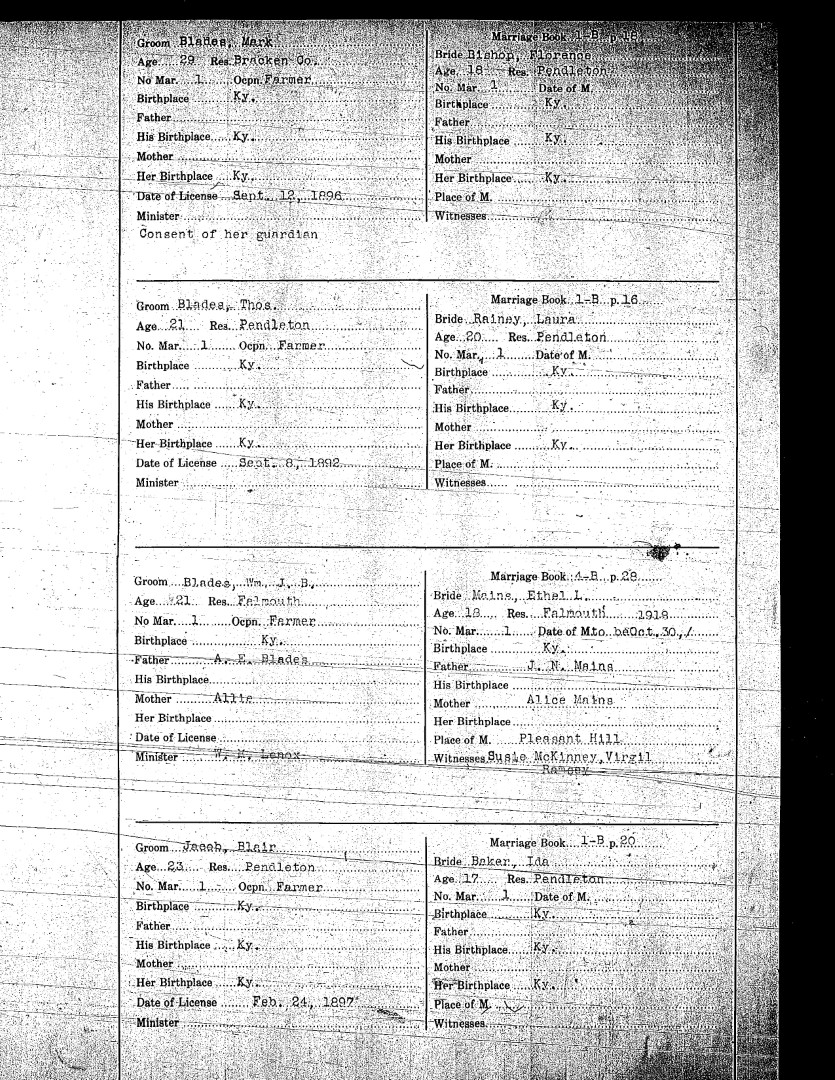 Groom Blades, Mark
Age 29 Res. Bracken Co.
No Mar. 1 Ocpn. Farmer
Birthplace Ky.
Father
His Birthplace Ky.
Mother
Her Birthplace Ky.
Date of License Sept. 12, 1896
Minister
Consent of her guardian
Marriage Book 1-B p. 18
Bride Bishop, Florence
Age 18 Res. Pendleton
No. Mar. 1 Date of M.
Birthplace Ky.
Father
His Birthplace Ky.
Mother
Her Birthplace Ky.
Place of M.
Witnesses
Groom Blades, Thos.
Age 21 Res. Pendleton
No. Mar. 1 Ocpn. Farmer
Birthplace Ky.
Father
His Birthplace Ky.
Mother
Her Birthplace Ky.
Date of License Sept. 8, 1892
Minister
Marriage Book 1-B p. 16
Bride Rainey, Laura
Age 20 Res. Pendleton
No. Mar. 1 Date of M.
Birthplace Ky.
Father
His Birthplace Ky.
Mother
Her Birthplace Ky.
Place of M.
Witnesses
Groom Blades, Wm. J. B.
Age 21 Res. Falmouth
No Mar. 1 Ocpn. Farmer
Birthplace Ky.
Father A. E. Blades
His Birthplace
Mother Allie
Her Birthplace
Date of License
Minister W. M. Lenox
Marriage Book 4-B p. 28
Bride Mains, Ethel L.
Age 18 Res. Falmouth 1918
No. Mar. 1 Date of M. to be Oct. 30, /
Birthplace Ky.
Father J. N. Mains
His Birthplace
Mother Alice Mains
Her Birthplace
Place of M. Pleasant Hill
Witnesses Susie McKinney, Virgil
Ramsey
Groom Jacob, Blair
Age 23 Res. Pendleton
No. Mar. 1 Ocpn. Farmer
Birthplace Ky.
Father
His Birthplace Ky.
Mother
Her Birthplace Ky.
Date of License Feb. 24, 1897
Minister
Marriage Book 1-B p. 20
Bride Baker, Ida
Age 17 Res. Pendleton
No. Mar. 1 Date of M.
Birthplace Ky.
Father
His Birthplace Ky.
Mother
Her Birthplace Ky.
Place of M.
Witnesses